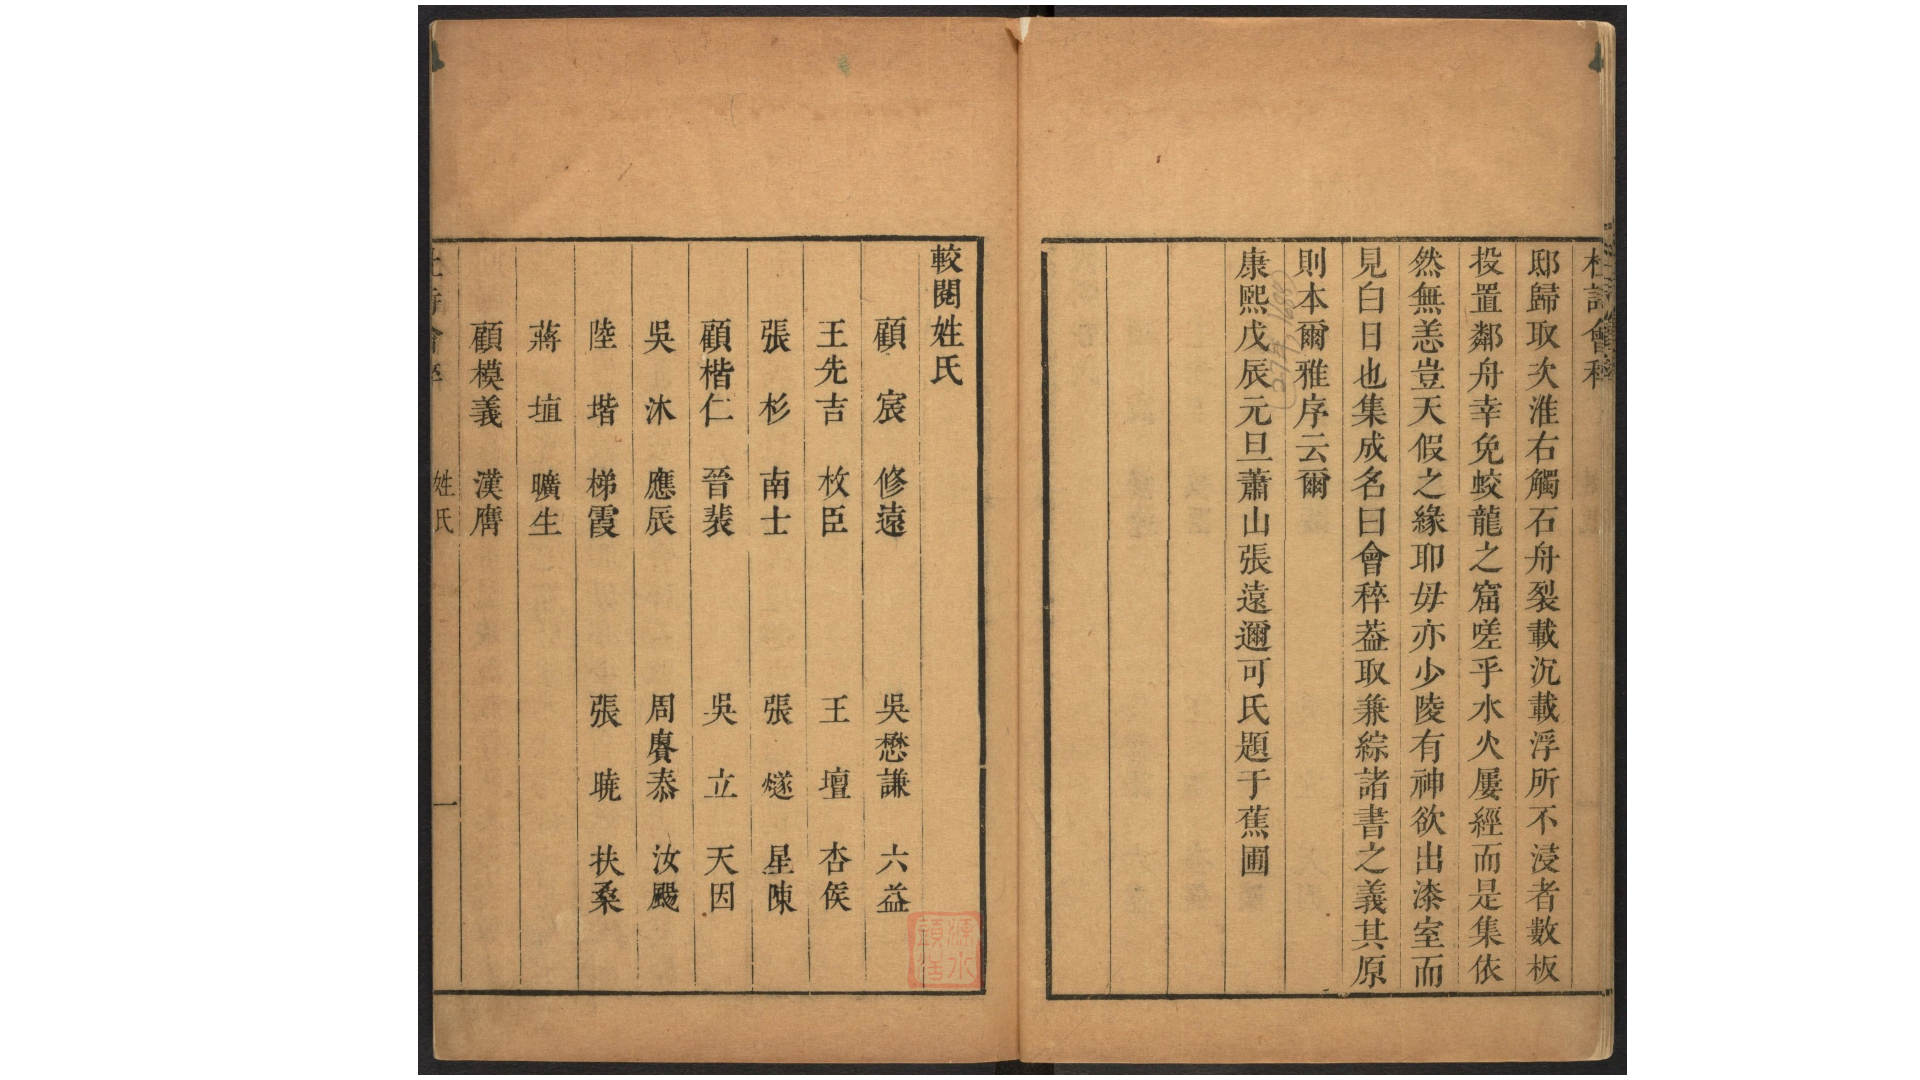 杜詩會稡
邸歸取次淮右觸石舟裂載沉載浮所不浸者數板
投置鄰舟幸免蛟龍之窟嗟乎水火屢經而是集依
然無恙豈天假之緣耶毋亦少陵有神欲出漆室而
見白日也集成名曰會稡葢取兼綜諸書之義其原
則本爾雅序云爾
康熙戊辰元旦蕭山張遠邇可氏題于蕉圃
較閱姓氏
顧宸 修遠 吳懋謙 六益
王先吉 枚臣 王壇 杏侯
張杉 南士 張燧 星陳
顧楷仁 晉裴 吳立 天因
吳沐 應辰 周賡泰 汝颺
陸堦 梯霞 張曉 扶桑
蔣埴 曠生
顧模義 漢膺
姓氏 一